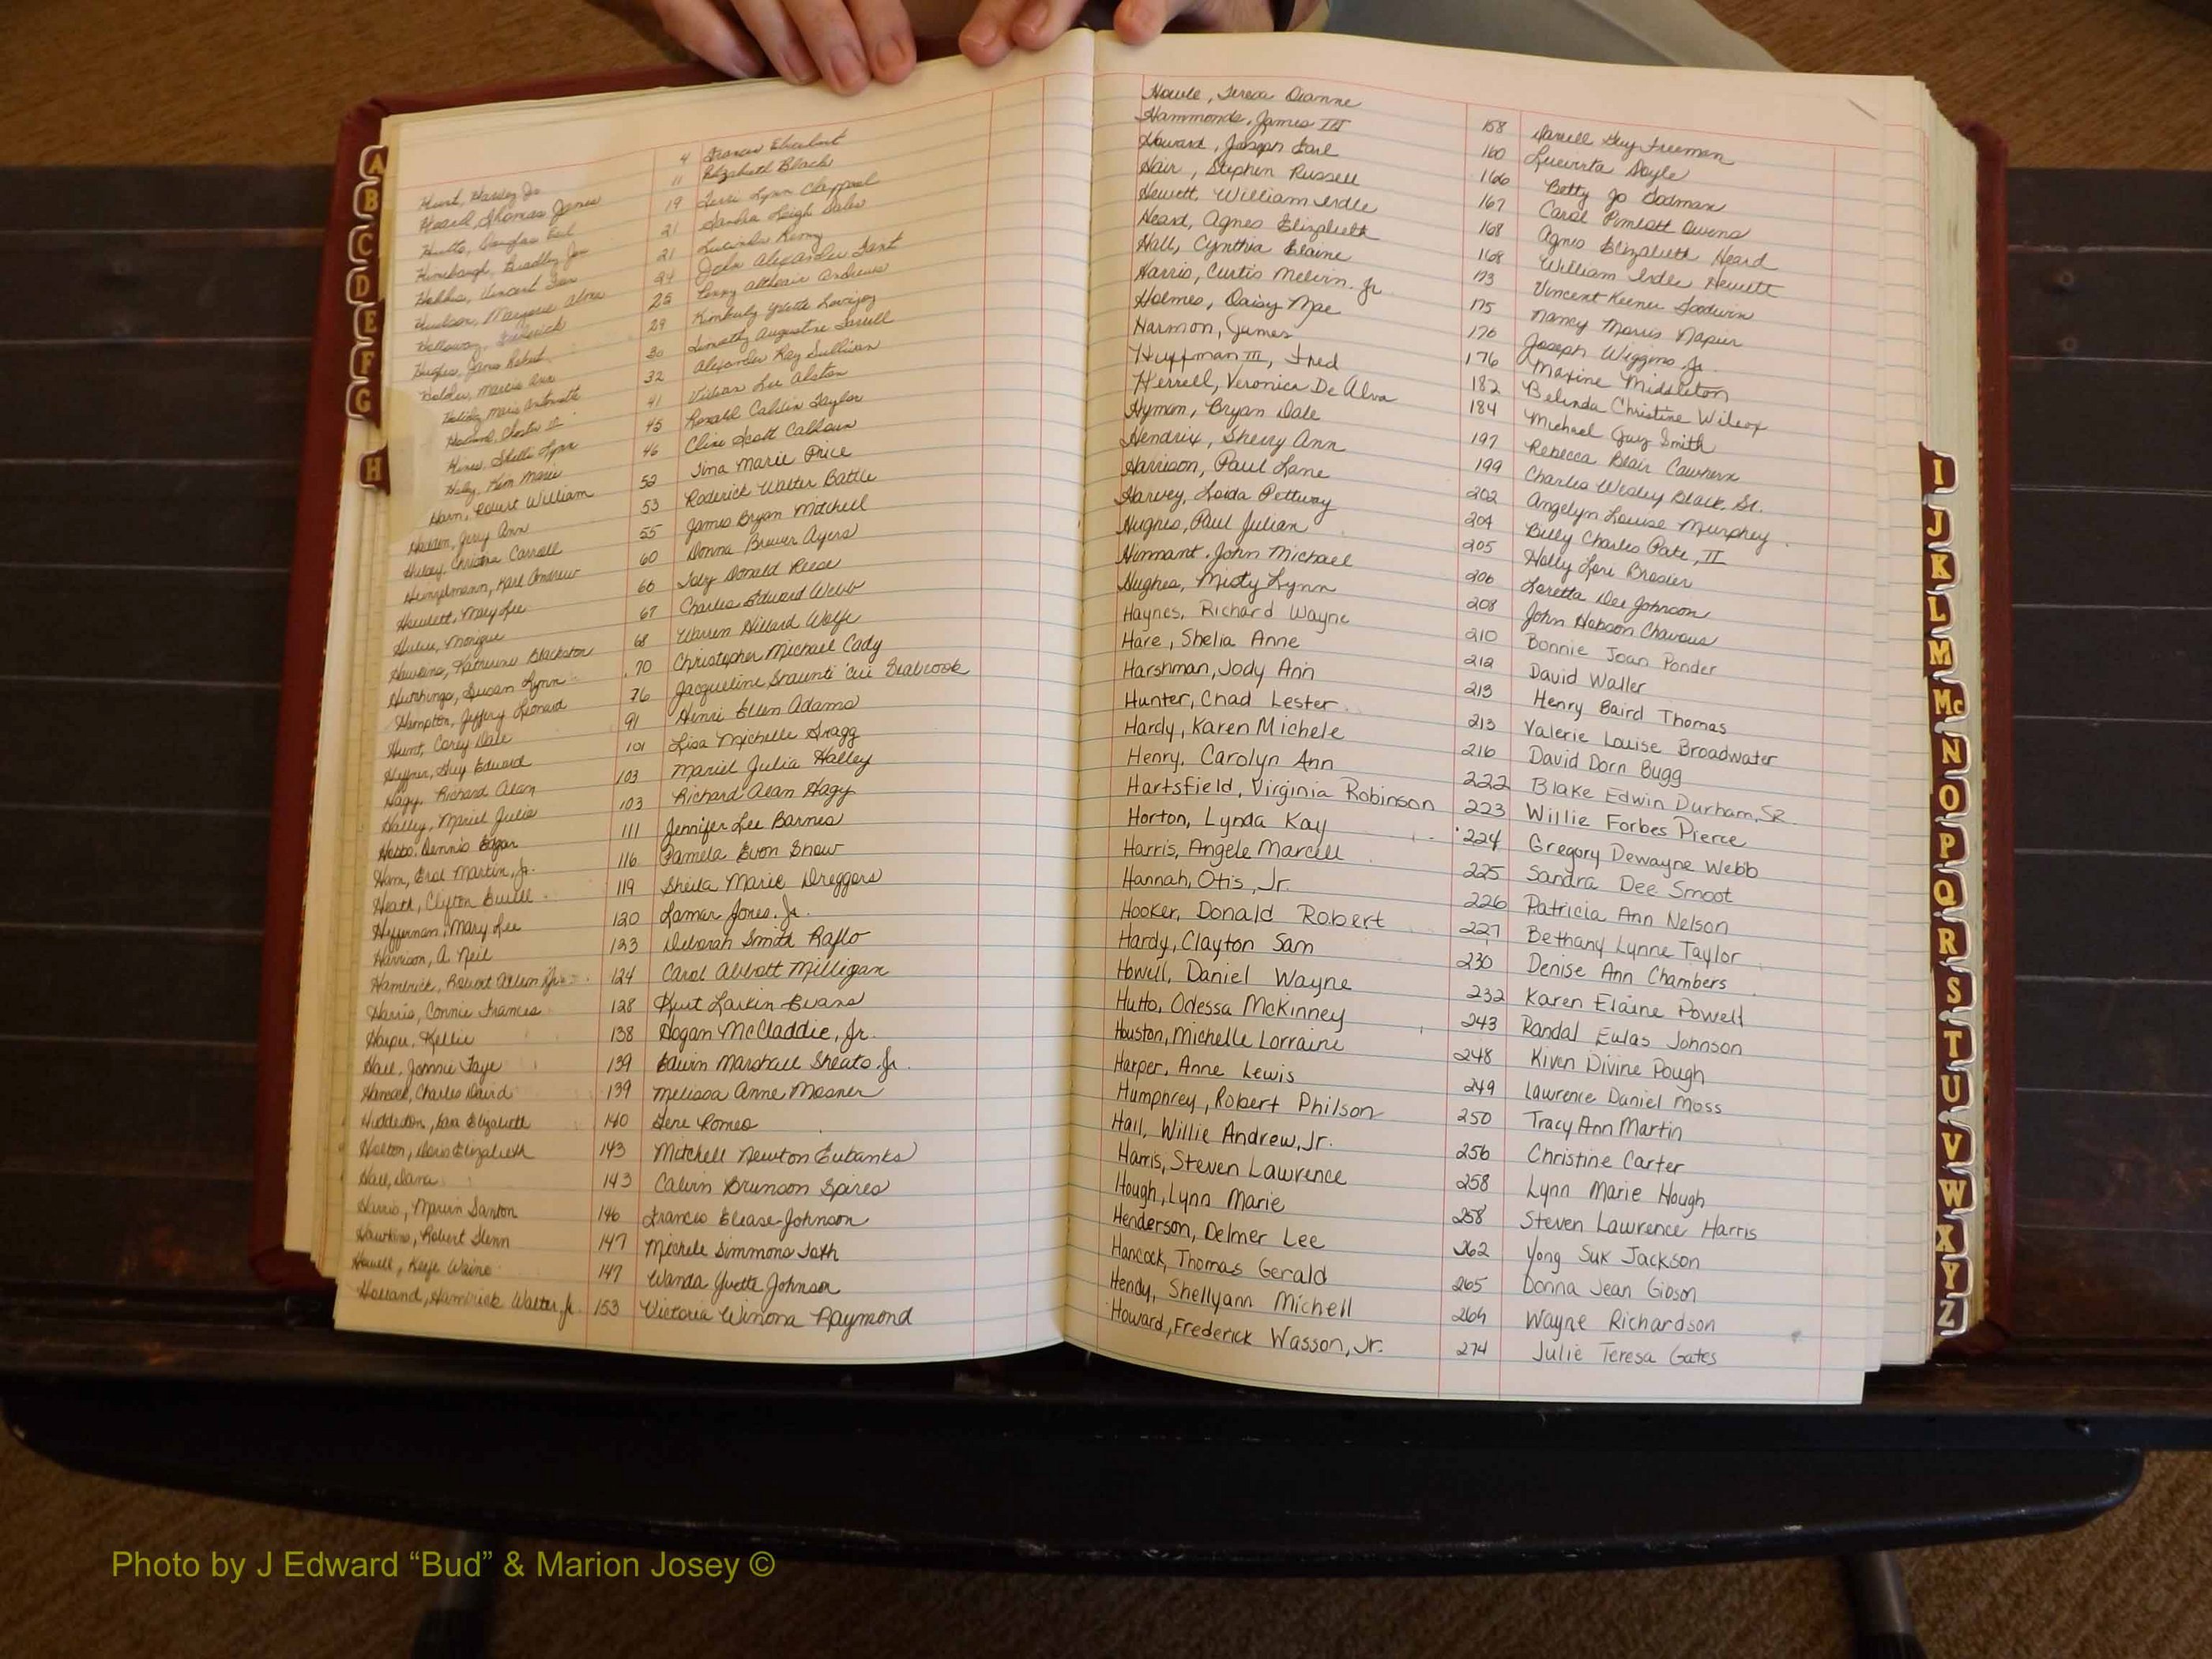 A
B
C
D
E
F
G
H
Hunt, Harley Jr. 4 Frances
Heard, Thomas James 11 Elizabeth Black
Hutto, Douglas Earl 19 Terri Lynn
Bradley Joe 21 Sandra Leigh Sales
Vincent 21 Lucinda
Hudson, Margaret 24 John Alexander Gant
Holloway, Frederick 25 Penny Altheair Andrews
Hughes, James Robert 29 Kimberly Yvette Lovejoy
Holder, Marcia Ann 30 Timothy Augustine
Holiday, Marie Antoinette 32 Alexander Ray Sullivan
Holland, 41 Vivian Lee Alston
Hines, Shelli Lynn 45 Ronald Calvin Taylor
Haley, Kem Marie 46 Cline Scott Calhoun
Harn, Robert William 52 Tina Marie Price
Hadden, Jerry Ann 53 Roderick Walter Battle
Christina Carroll 55 James Bryan Mitchell
Heinzelmann, Karl Andrew 60 Donna Brewer Ayers
Hewlett, Mary Lee 66 Toby Donald Reese
Monique 67 Charles Edward Webb
Hawkins, Katherine Blackston 68 Warren Hillard Wolfe
Hutchings, Susan Lynn 70 Christopher Michael Cady
Hampton, Jeffery Leonard 76 Jacqueline Shaunti 'cie Seabrook
Hunt, Corey Dale 91 Henri Ellen Adams
Heffner, Guy Edward 101 Lisa Michelle Gragg
Hagy, Richard Alan 103 Mariel Julia Halley
Halley, Mariel Julia 103 Richard Alan Hagy
Hobbs, Dennis Edgar 111 Jennifer Lee Barnes
Ham, Erol Martin, Jr. 116 Pamela Evon Snow
Heath, Clifton Buille 119 Sheila Marie Dreggors
Heffernan, Mary Lee 120 Lamar Jones, Jr.
Harrison, A Neil 123 Deborah Smith Raflo
Hambrick, Robert Allen Jr. 124 Carol Abbott Milligan
Harris, Connie Frances 128 Kurt Larkin Evans
Harper, Kellie 138 Hogan McCladdie, Jr.
Hall, Johnnie Faye 139 Edwin Marshall Sheats, Jr.
Hancock, Charles David 139 Melissa Anne Mosner
Huddleston, Sara Elizabeth 140 Gene Romeo
Holton, Doris Elizabeth 143 Mitchell Newton Eubanks
Hall, Dana 143 Calvin Brunson Spires
Harris, Marvin Santon 146 Francis Elease Johnson
Hawkins, Robert Glenn 147 Michele Simmons Toth
Howell, Keefe Waino 147 Wanda Yvette Johnson
Holland, Hambrick Walter, Jr. 153 Victoria Winona Raymond
Howle, Teresa Dianne 158 Darrell Guy Freeman
Hammonds, James III 160 Luevirta Doyle
Howard, Joseph Earl 166 Betty Jo Dodman
Hair, Stephen Russell 167 Carol Pimlott Owens
Hewett, William Irdle 168 Agnes Elizabeth Heard
Heard, Agnes Elizabeth 168 William Irdle Hewett
Hall, Cynthia Elaine 173 Vincent Keener Goodwin
Harris, Curtis Melvin, Jr. 175 Nancy Morris Napier
Holmes, Daisy Mae 176 Joseph Wiggins Jr.
Harmon, James 176 Maxine Middleton
Huffman III, Fred 182 Belinda Christine Wilcox
Herrell, Veronica De Alva 184 Michael Guy Smith
Hymen, Bryan Dale 197 Rebecca Blair Cawhern
Hendrix, Sherry Ann 199 Charles Wesley Black, Sr.
Harrison, Paul Lane 202 Angelyn Louise Murphey
Harvey, Loida Pettway 204 Billy Charles Pate, II
Hughes, Paul Julian 205 Holly Lori Brasier
Hinnant, John Michael 206 Loretta Dee Johnson
Hughes, Misty Lynn 208 John Hobson Chavous
Haynes, Richard Wayne 210 Bonnie Joan Ponder
Hare, Shelia Anne 212 David Waller
Harshman, Jody Ann 213 Henry Baird Thomas
Hunter, Chad Lester 213 Valerie Louise Broadwater
Hardy, Karen Michele 216 David Dorn Bugg
Henry, Carolyn Ann 222 Blake Edwin Durham, SR.
Hartsfield, Virginia Robinson 223 Willie Forbes Pierce
Horton, Lynda Kay 224 Gregory Dewayne Webb
Harris, Angele Marcell 225 Sandra Dee Smoot
Hannah, Otis, Jr. 226 Patricia Ann Nelson
Hooker, Donald Robert 227 Bethany Lynne Taylor
Hardy, Clayton Sam 230 Denise Ann Chambers
Howell, Daniel Wayne 232 Karen Elaine Powell
Hutto, Odessa McKinney 243 Randal Eulas Johnson
Houston, Michelle Lorraine 248 Kiven Divine Pough
Harper, Anne Lewis 249 Lawrence Daniel Moss
Humphrey, Robert Philson 250 Tracy Ann Martin
Hail, Willie Andrew, Jr. 256 Christine Carter
Harris, Steven Lawrence 258 Lynn Marie Hough
Hough, Lynn Marie 258 Steven Lawrence Harris
Henderson, Delmer Lee 262 Yong Suk Jackson
Hancock, Thomas Gerald 265 Donna Jean Gibson
Hendy, Shellyann Michell 269 Wayne Richardson
Howard, Frederick Wasson, Jr. 274 Julie Teresa Gates
I
J
K
L
M
Mc
N
O
P
Q
R
S
T
U
V
W
X
Y
Z
Photo by J Edward “Bud” & Marion Josey ©